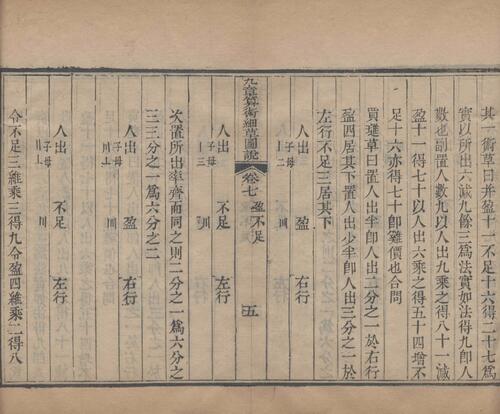 其一術曰并盈十一不足十六得二十七爲
實以所出六減九餘三爲法實如法得九卽人
數也副置人數九以人出九乘之得八十一減
盈十一得七十以人出六乘之得五十四增不
足十六亦得七十卽雞價也合問
買璡草曰置人出半卽人出二分之一於右行
盈四居其下置人出少半卽人出三分之一於
左行不足三居其下
人出 子母 盈 右行
九章算術細草圖說 卷七 盈不足 五
人出 子母 不足 左行
次置所出率齊而同之則二分之一爲六分之
三三分之一爲六分之二
人出 子母 盈 右行
人出 子母 不足 左行
令不足三維乘三得九令盈四維乘二得八